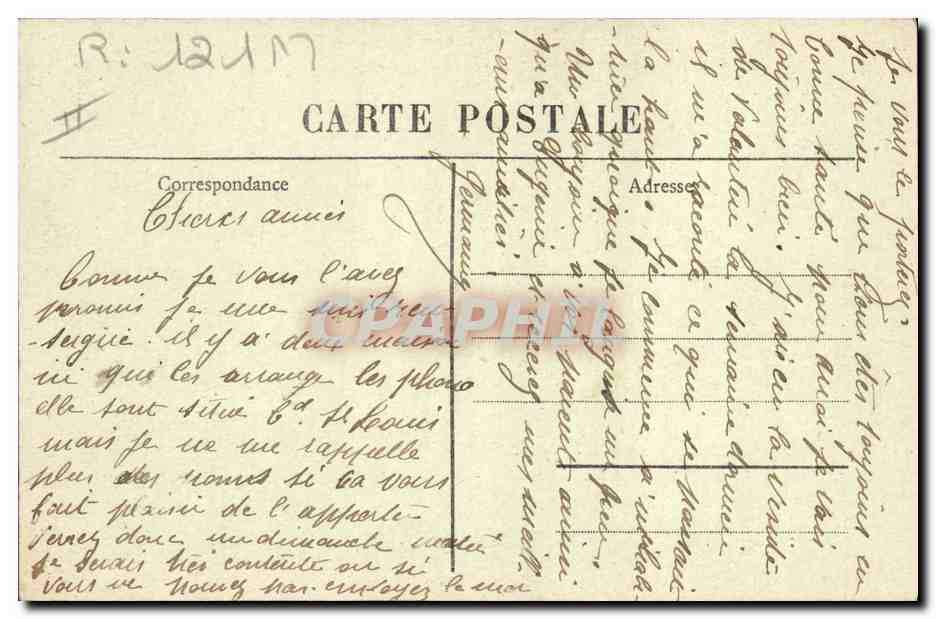 R: 121M
II
CARTE POSTALE
Correspondance
Adresse
Chers amies
Comme je vous l'avez
promis je me suis ren-
seigné. il y à deux maison
ici qui les arrange les phono
elle sont situé Bd St Louis
mais je ne me rappelle
plus des noms si ca vous
fait plaisir de l'apporter
venez donc un dimanche
je serais très contente ou si
vous ne pouvez pas envoyer le moi
je vous le
Je pense que vous êtes toujours en
bonne santé pour moi je vais
toujours bien. J'ai eu la visite
de Valentin la semaine
il m'a raconté ce qui se
la haut. Je commence à
quoique je languis un peu.
Un bonjour à vos parent ainsi
qu'a Eugenie et recevez mes meill-
amitiés
Germaine
CPAPHIL